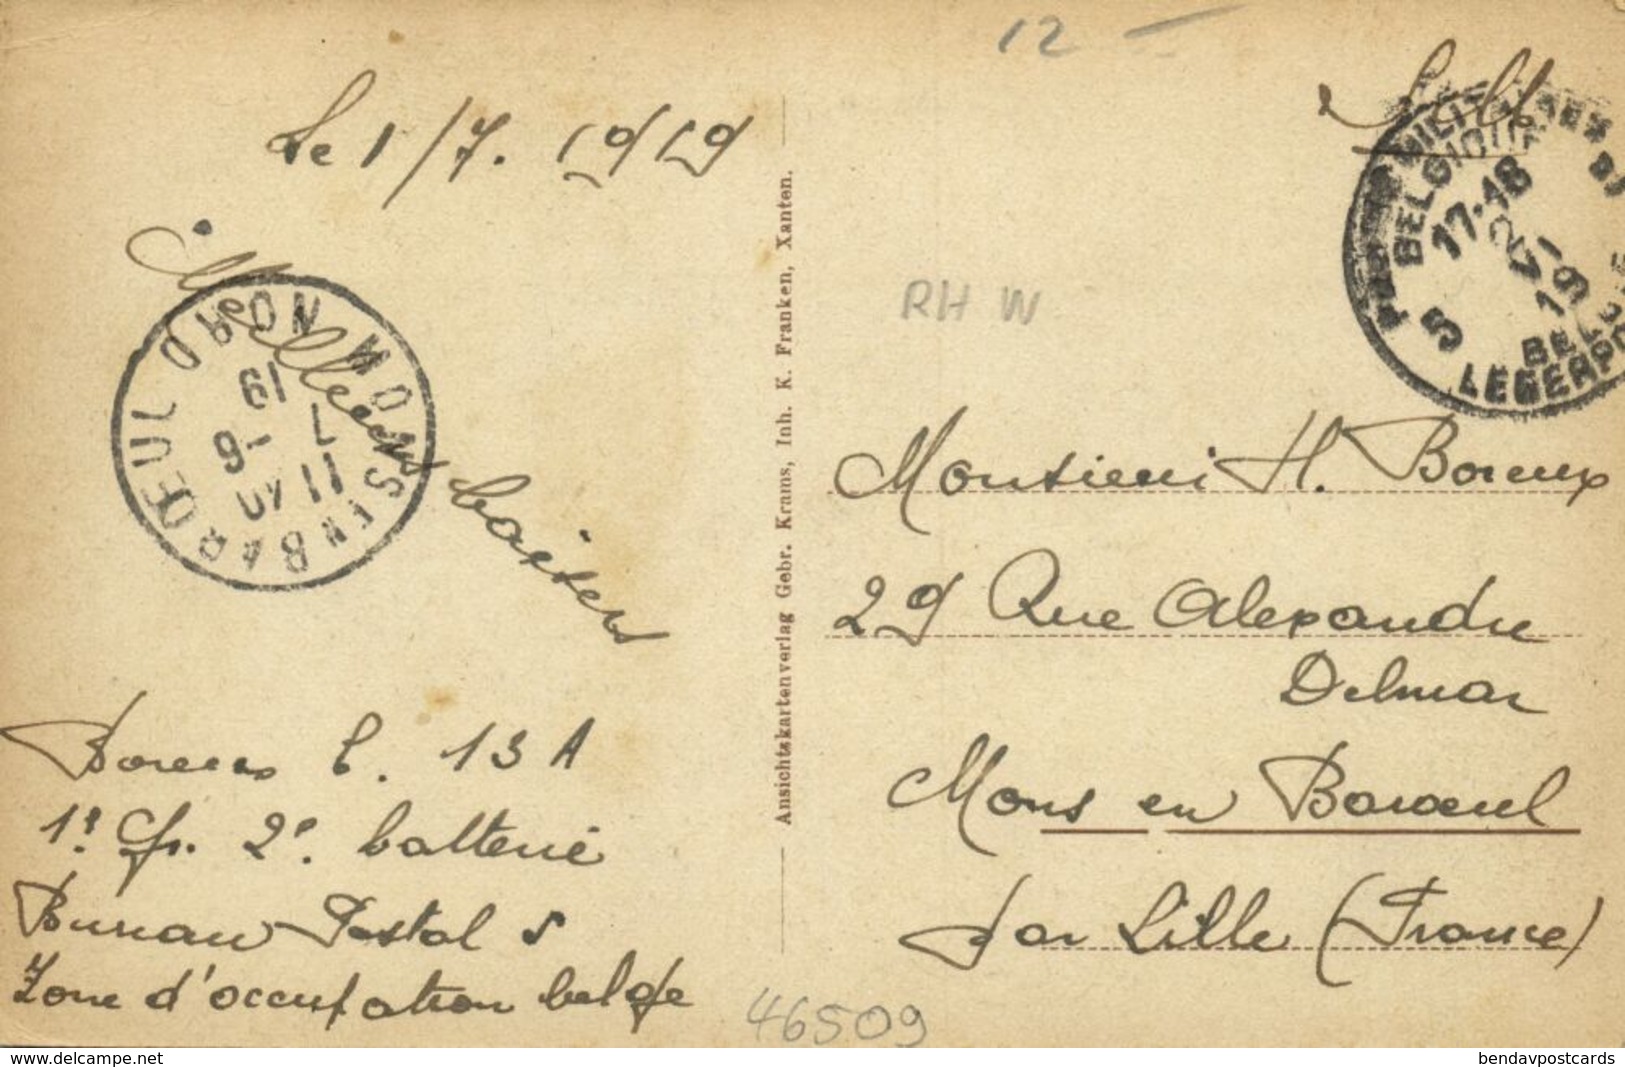 12 -
Le 1/7. 1919
Meilleurs baisers
Boreux C. 13 A
1º Gr. 2º. batterie
Bureau Postal 5
Zone d'occupation belge
MONS EN BARŒUL NORD
11 40
7 - 9
19
Ansichtskartenverlag Gebr. Krams, Inh. K. Franken, Xanten.
RH W
BELGIQUE
17-18
2 VII
19
5
LEGERPO
Monsieur H. Boreux
29 Rue Alexandre
Delmar
Mons en Baroeul
par Lille (France)
46509
www.delcampe.net
bendavpostcards